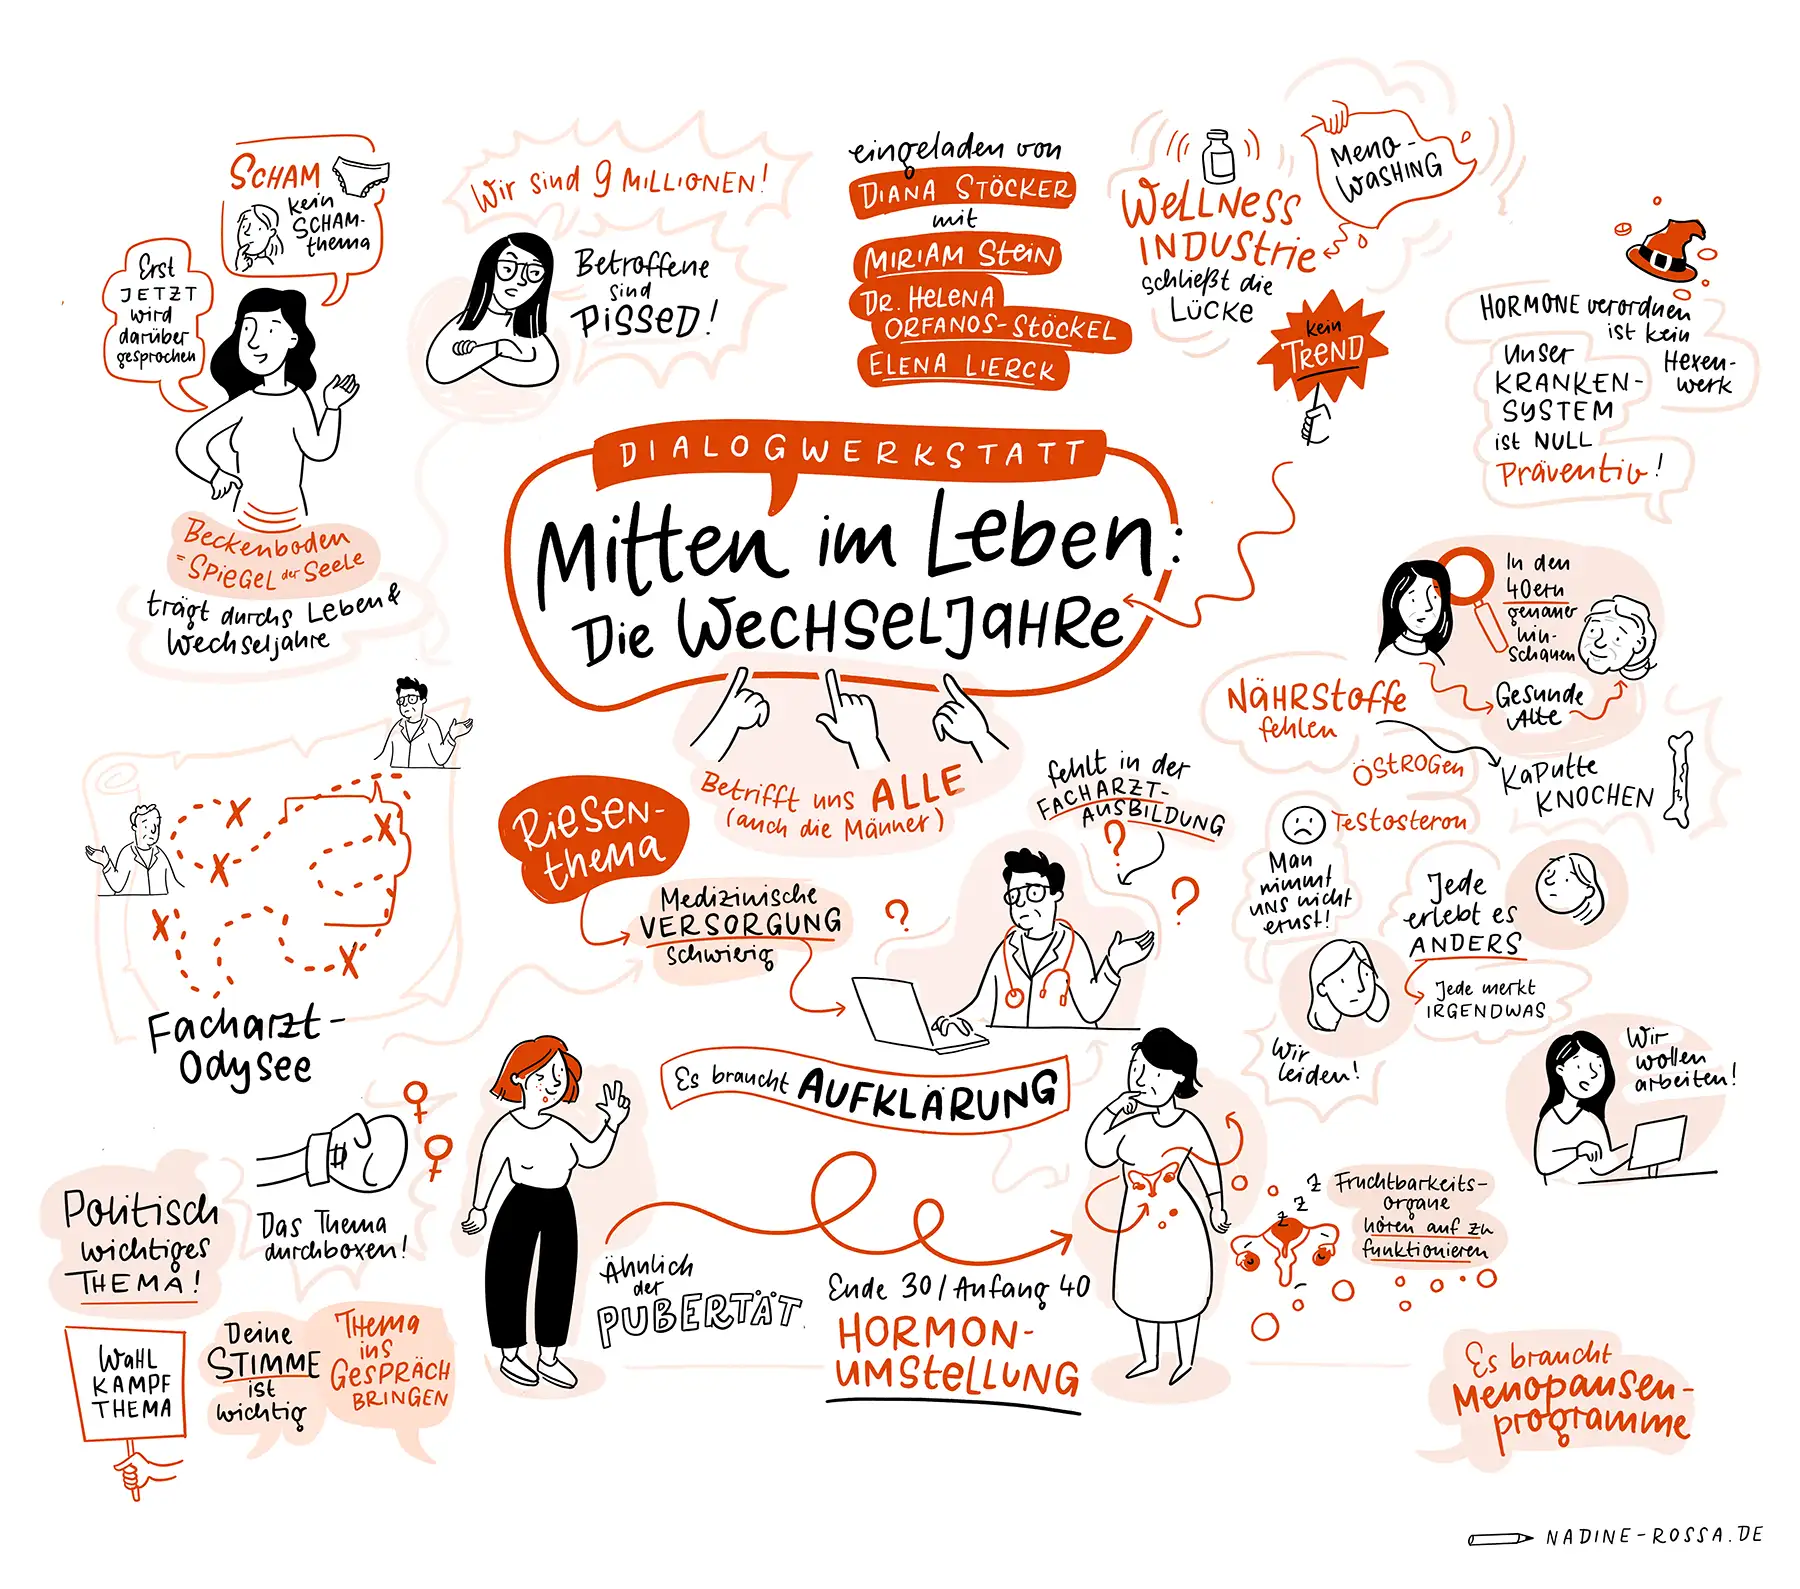 SCHAM
kein
SCHAM-
thema
Erst
JETZT
wird
darüber
gesprochen
Beckenboden
= SPIEGEL der SEELE
trägt durchs Leben &
Wechseljahre
Wir sind 9 MILLIONEN!
Betroffene
sind
PISSED!
eingeladen von
DIANA STÖCKER
mit
MIRIAM STEIN
DR. HELENA
ORFANOS-STÖCKEL
ELENA LIERCK
WELLNESS
INDUSTRIE
schließt die
LÜCKE
MENO-
WASHING
kein
TREND
HORMONE verordnen
ist kein
Hexen-
werk
Unser
KRANKEN-
SYSTEM
ist NULL
Präventiv!
DIALOGWERKSTATT
Mitten im Leben:
Die WECHSELJAHRE
Betrifft uns ALLE
(auch die Männer)
In den
40ern
genauer
hin-
schauen
Gesunde
Alte
NÄHRSTOFFE
fehlen
ÖSTROGEN
Testosteron
Kaputte
KNOCHEN
Man
nimmt
uns nicht
ernst!
Jede
erlebt es
ANDERS
Jede merkt
IRGENDWAS
Wir
leiden!
Wir
wollen
arbeiten!
Facharzt-
Odysee
RIESEN-
thema
Medizinische
VERSORGUNG
schwierig
fehlt in der
FACHARZT-
AUSBILDUNG
?
?
?
Es braucht AUFKLÄRUNG
Politisch
wichtiges
THEMA!
Das Thema
durchboxen!
WAHL
KAMPF
THEMA
Deine
STIMME
ist
wichtig
THEMA
ins
GESPRÄCH
BRINGEN
Ähnlich
der
PUBERTÄT
Ende 30 / Anfang 40
HORMON-
UMSTELLUNG
z z z z
Fruchtbarkeits-
organe
hören auf zu
funktionieren
Es braucht
Menopausen-
programme
NADINE-ROSSA.DE